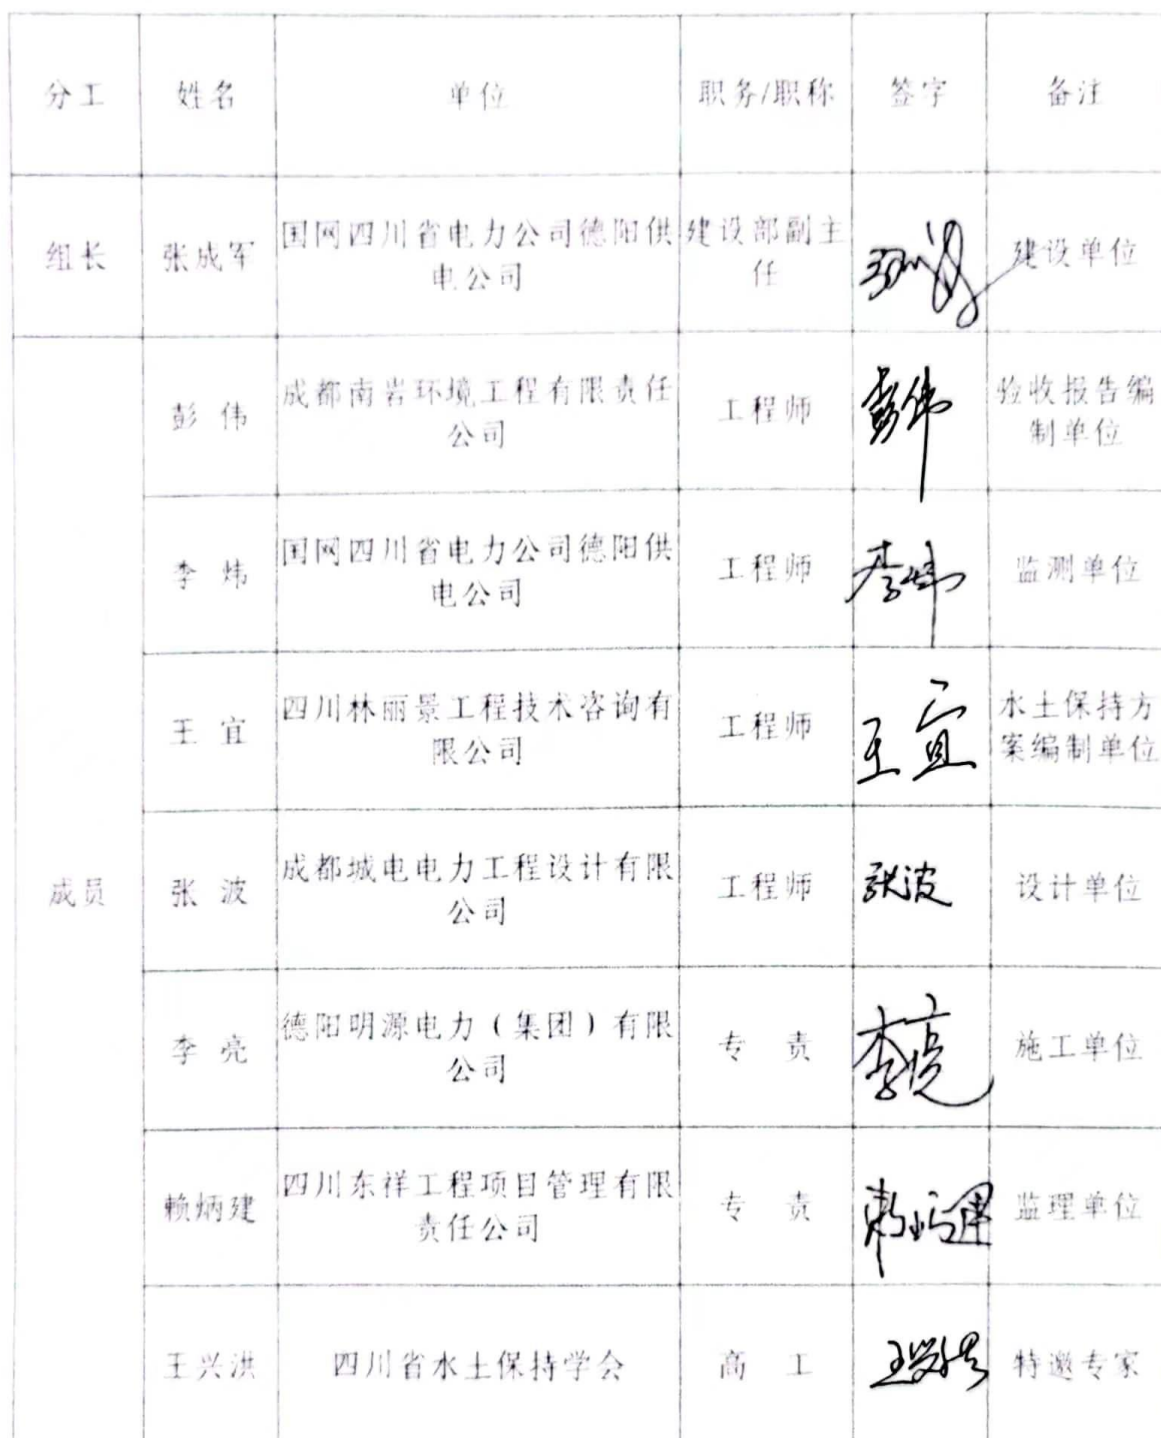 分工 姓名 单位 职务/职称 签字 备注
组长 张成军 国网四川省电力公司德阳供 建设部副主 建设单位
电公司 任
彭伟 成都南岩环境工程有限责任 工程师 彭伟 验收报告编
公司 制单位
李炜 国网四川省电力公司德阳供 工程师 李炜 监测单位
电公司
王宜 四川林丽景工程技术咨询有 工程师 王宜 水土保持方
限公司 案编制单位
成员 张波 成都城电电力工程设计有限 工程师 张波 设计单位
公司
李亮 德阳明源电力（集团）有限 专责 李亮 施工单位
公司
赖炳建 四川东祥工程项目管理有限 专责 赖炳建 监理单位
责任公司
王兴洪 四川省水土保持学会 高工 王兴洪 特邀专家